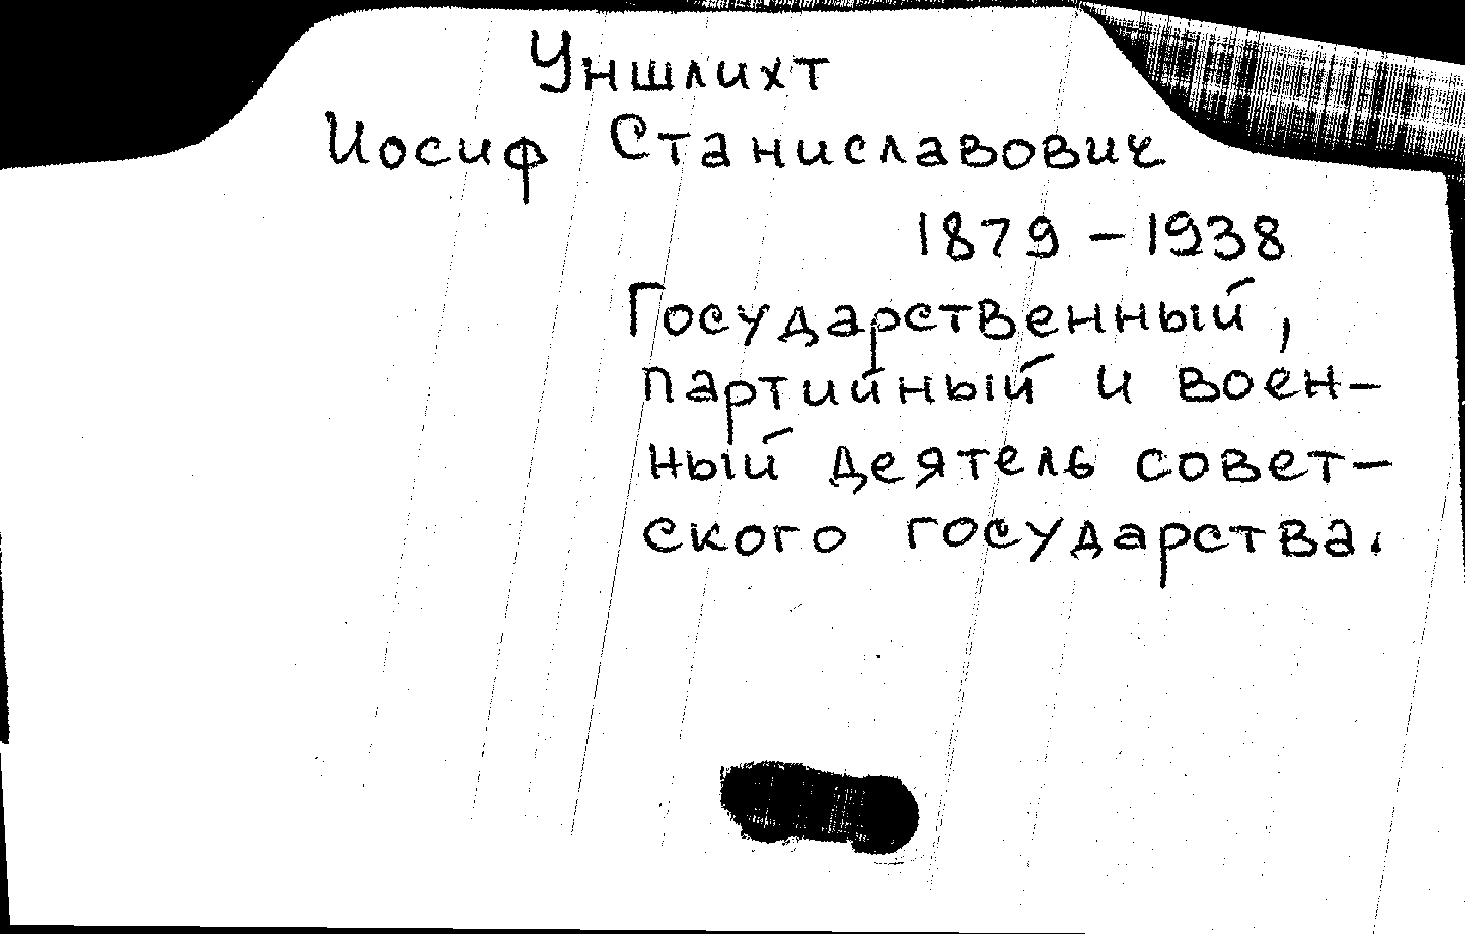 Уншлихт
Иосиф Станиславович
1879 – 1938
Государственный,
партийный и воен-
ный деятель совет-
ского государства.